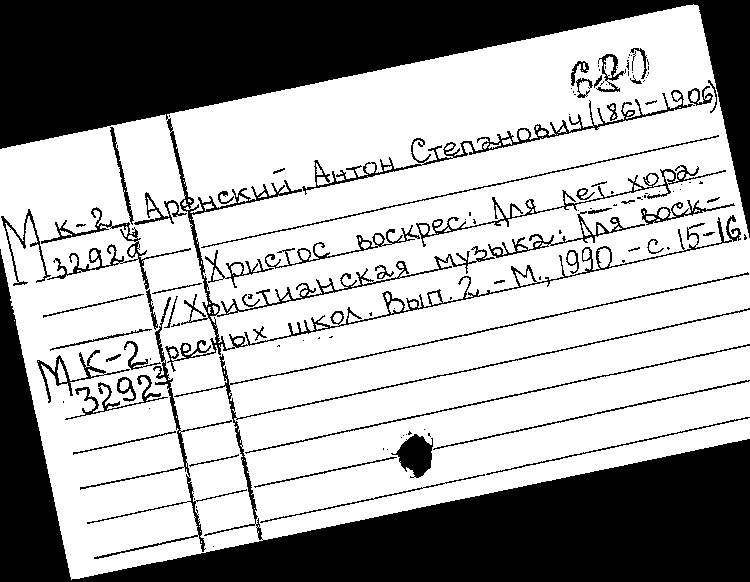 620
Аренский, Антон Степанович (1861-1906)
М К-2
3292
Христос воскрес: Для дет. хора
// Христианская музыка: Для воск-
ресных школ. Вып. 2. - М., 1990. - с. 15-16.
М К-2
3292